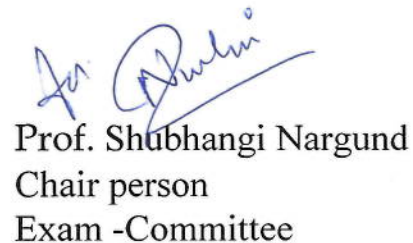 Prof. Shubhangi Nargund
Chair person
Exam -Committee